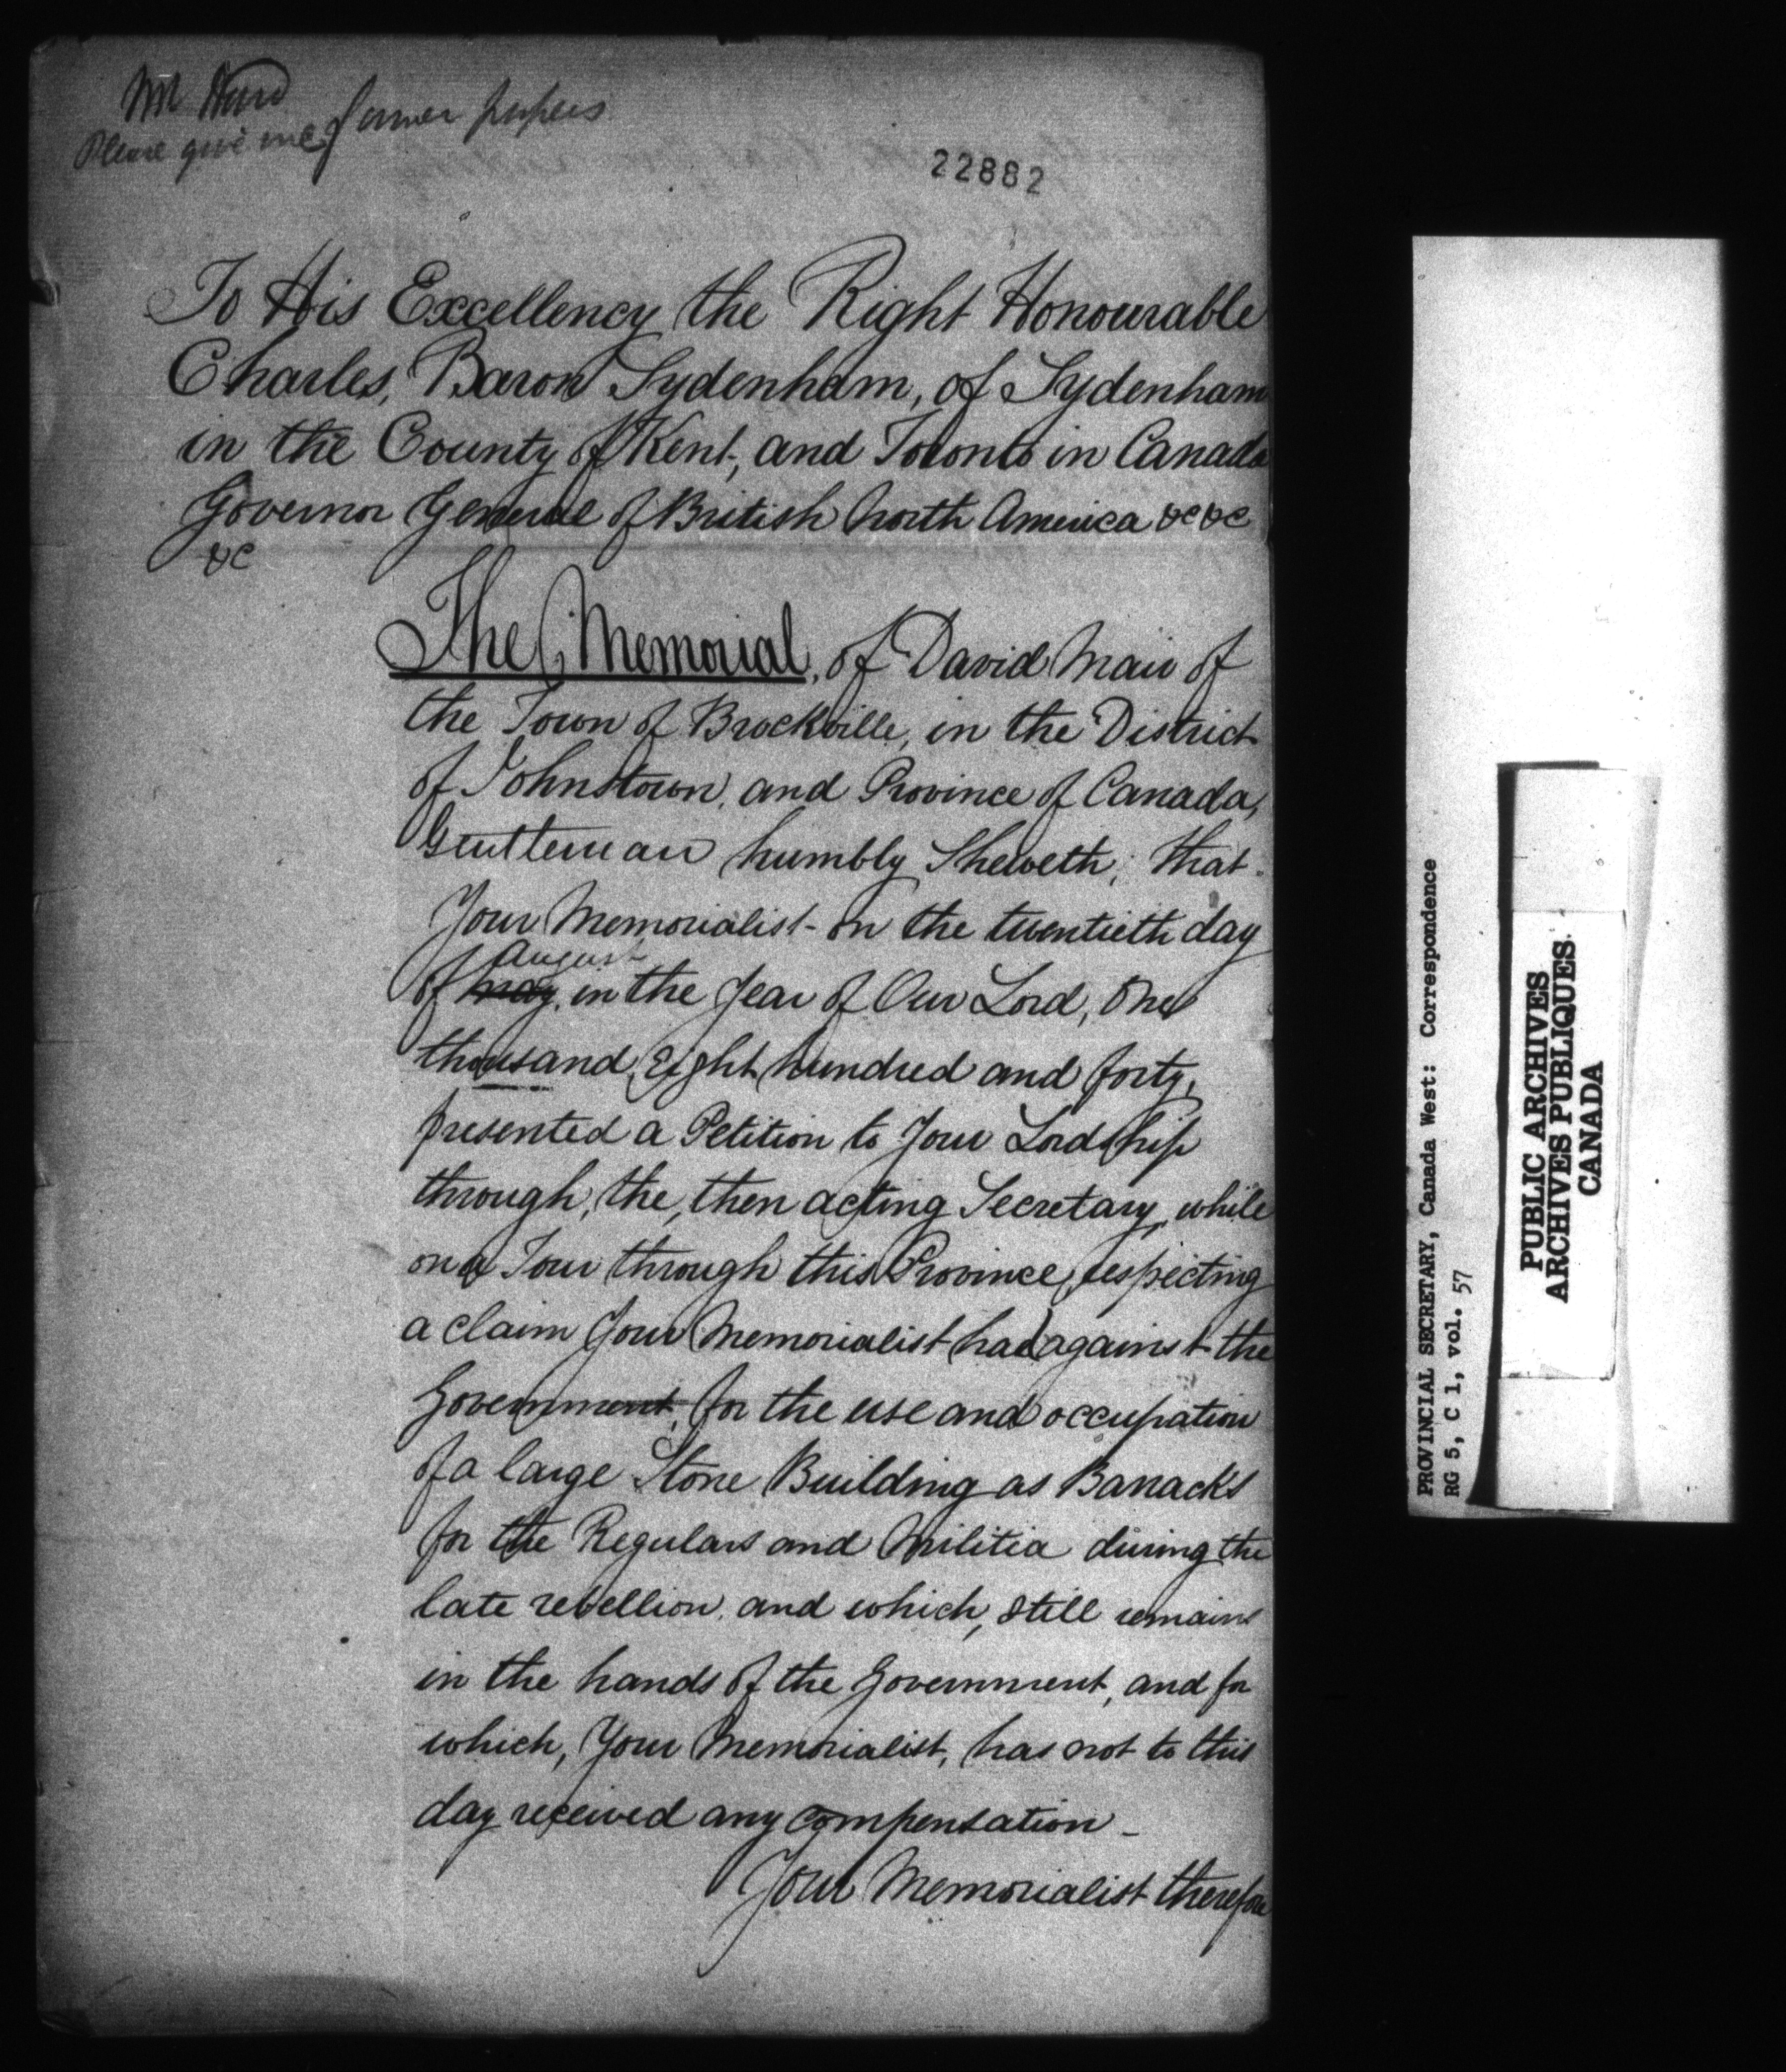 Please give me former papers
22882
To His Excellency the Right Honourable
Charles, Baron Sydenham, of Sydenham
in the County of Kent, and Toronto in Canada
Governor General of British North America &c &c
&c
The Memorial, of David Mair of
the Town of Brockville, in the District
of Johnstown, and Province of Canada,
Gentleman humbly Sheweth; that
Your Memorialist on the twentieth day
August
of may, in the Year of Our Lord, One
thousand Eight hundred and forty,
presented a Petition to Your Lordship
through, the, then acting Secretary, while
on a Tour through this Province, respecting
a claim Your Memorialist had against the
Government, for the use and occupation
of a large Stone Building as Barracks
for the Regulars and Militia during the
late rebellion, and which, still remains
in the hands of the Government, and for
which, Your Memorialist, has not to this
day received any compensation –
Your Memorialist therefore
PROVINCIAL SECRETARY, Canada West: Correspondence
RG 5, C 1, vol. 57
PUBLIC ARCHIVES
ARCHIVES PUBLIQUES
CANADA